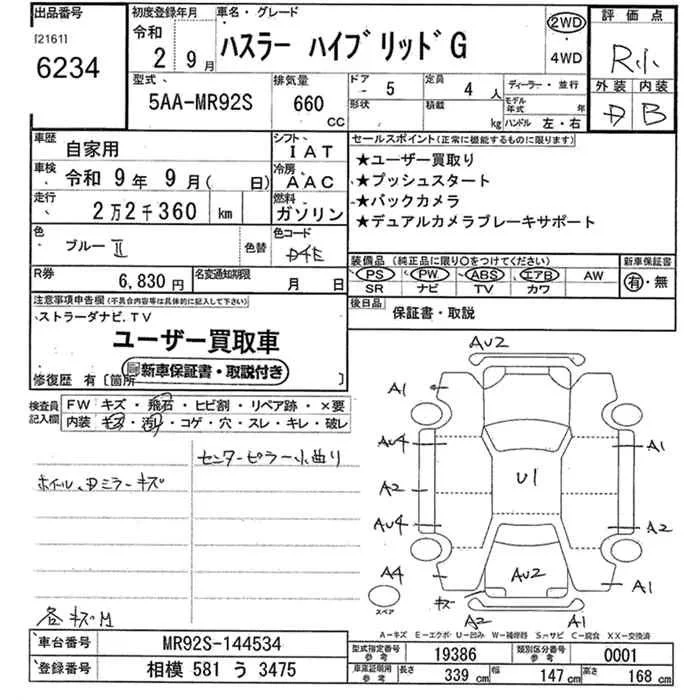 出品番号
[2161]
6234
初度登録年月
令和
2 9月
車名・グレード
ハスラー ハイブリッドG
2WD
4WD
評価点
R小
外装 内装
D B
型式
5AA-MR92S
排気量
660
CC
ドア
5
定員
4 人
形状
積載
kg
ディーラー・並行
モデル年式 年
ハンドル 左・右
車歴
自家用
シフト
IAT
車検
令和 9年 9月( 日)
冷房
AAC
走行
2万2千360 km
燃料
ガソリン
色
ブルーⅡ
色替
色コード
R券
6,830円
名変通知期限
月 日
セールスポイント(正常に機能するものに限ります)
★ユーザー買取り
★プッシュスタート
★バックカメラ
★デュアルカメラブレーキサポート
装備品 (純正品に限り○をつけてください)
PS PW ABS エアB AW
SR ナビ TV カワ
新車保証書
有・無
後日品
保証書・取説
注意事項申告欄(不具合内容等は具体的に記入して下さい)
ストラーダナビ.TV
ユーザー買取車
新車保証書・取説付き
修復歴 有 [箇所 ]
検査員記入欄
FW キズ・飛石・ヒビ割・リペア跡・×要
内装 キズ・汚れ・コゲ・穴・スレ・キレ・破レ
センターピラー小曲り
ホイル、Dミラーキズ
各キズM
AU2
A1
AU4
A1
A2
U1
AU4
A2
A4
AU2
A1
キズ
スペア
A2
A1
A-キズ E-エクボ U-凹み W-補修跡 S-サビ C-腐食 XX-交換済
車台番号
MR92S-144534
登録番号
相模 581 う 3475
型式指定番号
参考
19386
類別区分番号
参考
0001
車庫証明用
参考
長さ
339 cm
幅
147 cm
高さ
168 cm